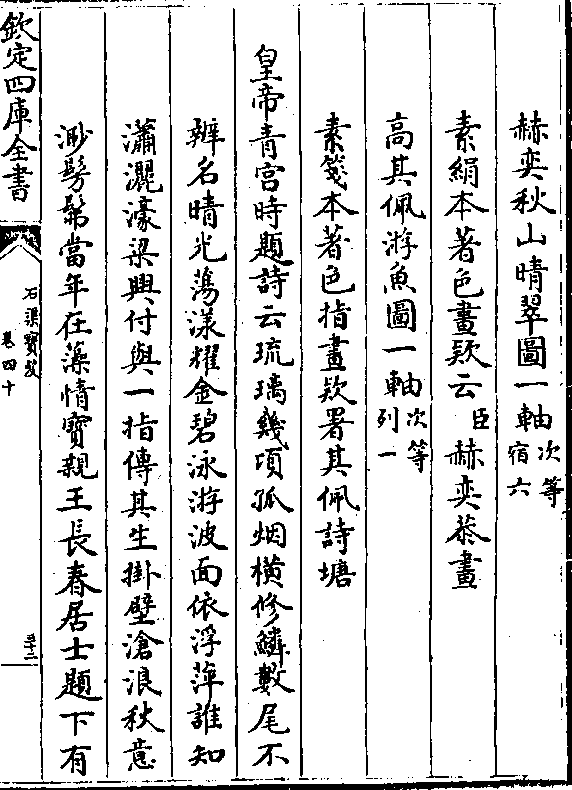 赫奕秋山晴翠圖一軸次等宿六
素絹本著色畫款云臣赫奕恭畫
高其佩游魚圖一軸次等列一
素箋本著色指畫款署其佩詩塘
皇帝青宫時題詩云琉璃幾項孤烟橫修鱗數尾不
辨名晴光蕩漾耀金碧泳游波面依浮萍誰知
瀟灑濠梁興付與一指傳其生掛壁滄浪秋意
渺髣髴當年在藻情寶親王長春居士題下有
欽定四庫全書
石渠寶笈
卷四十
三十二